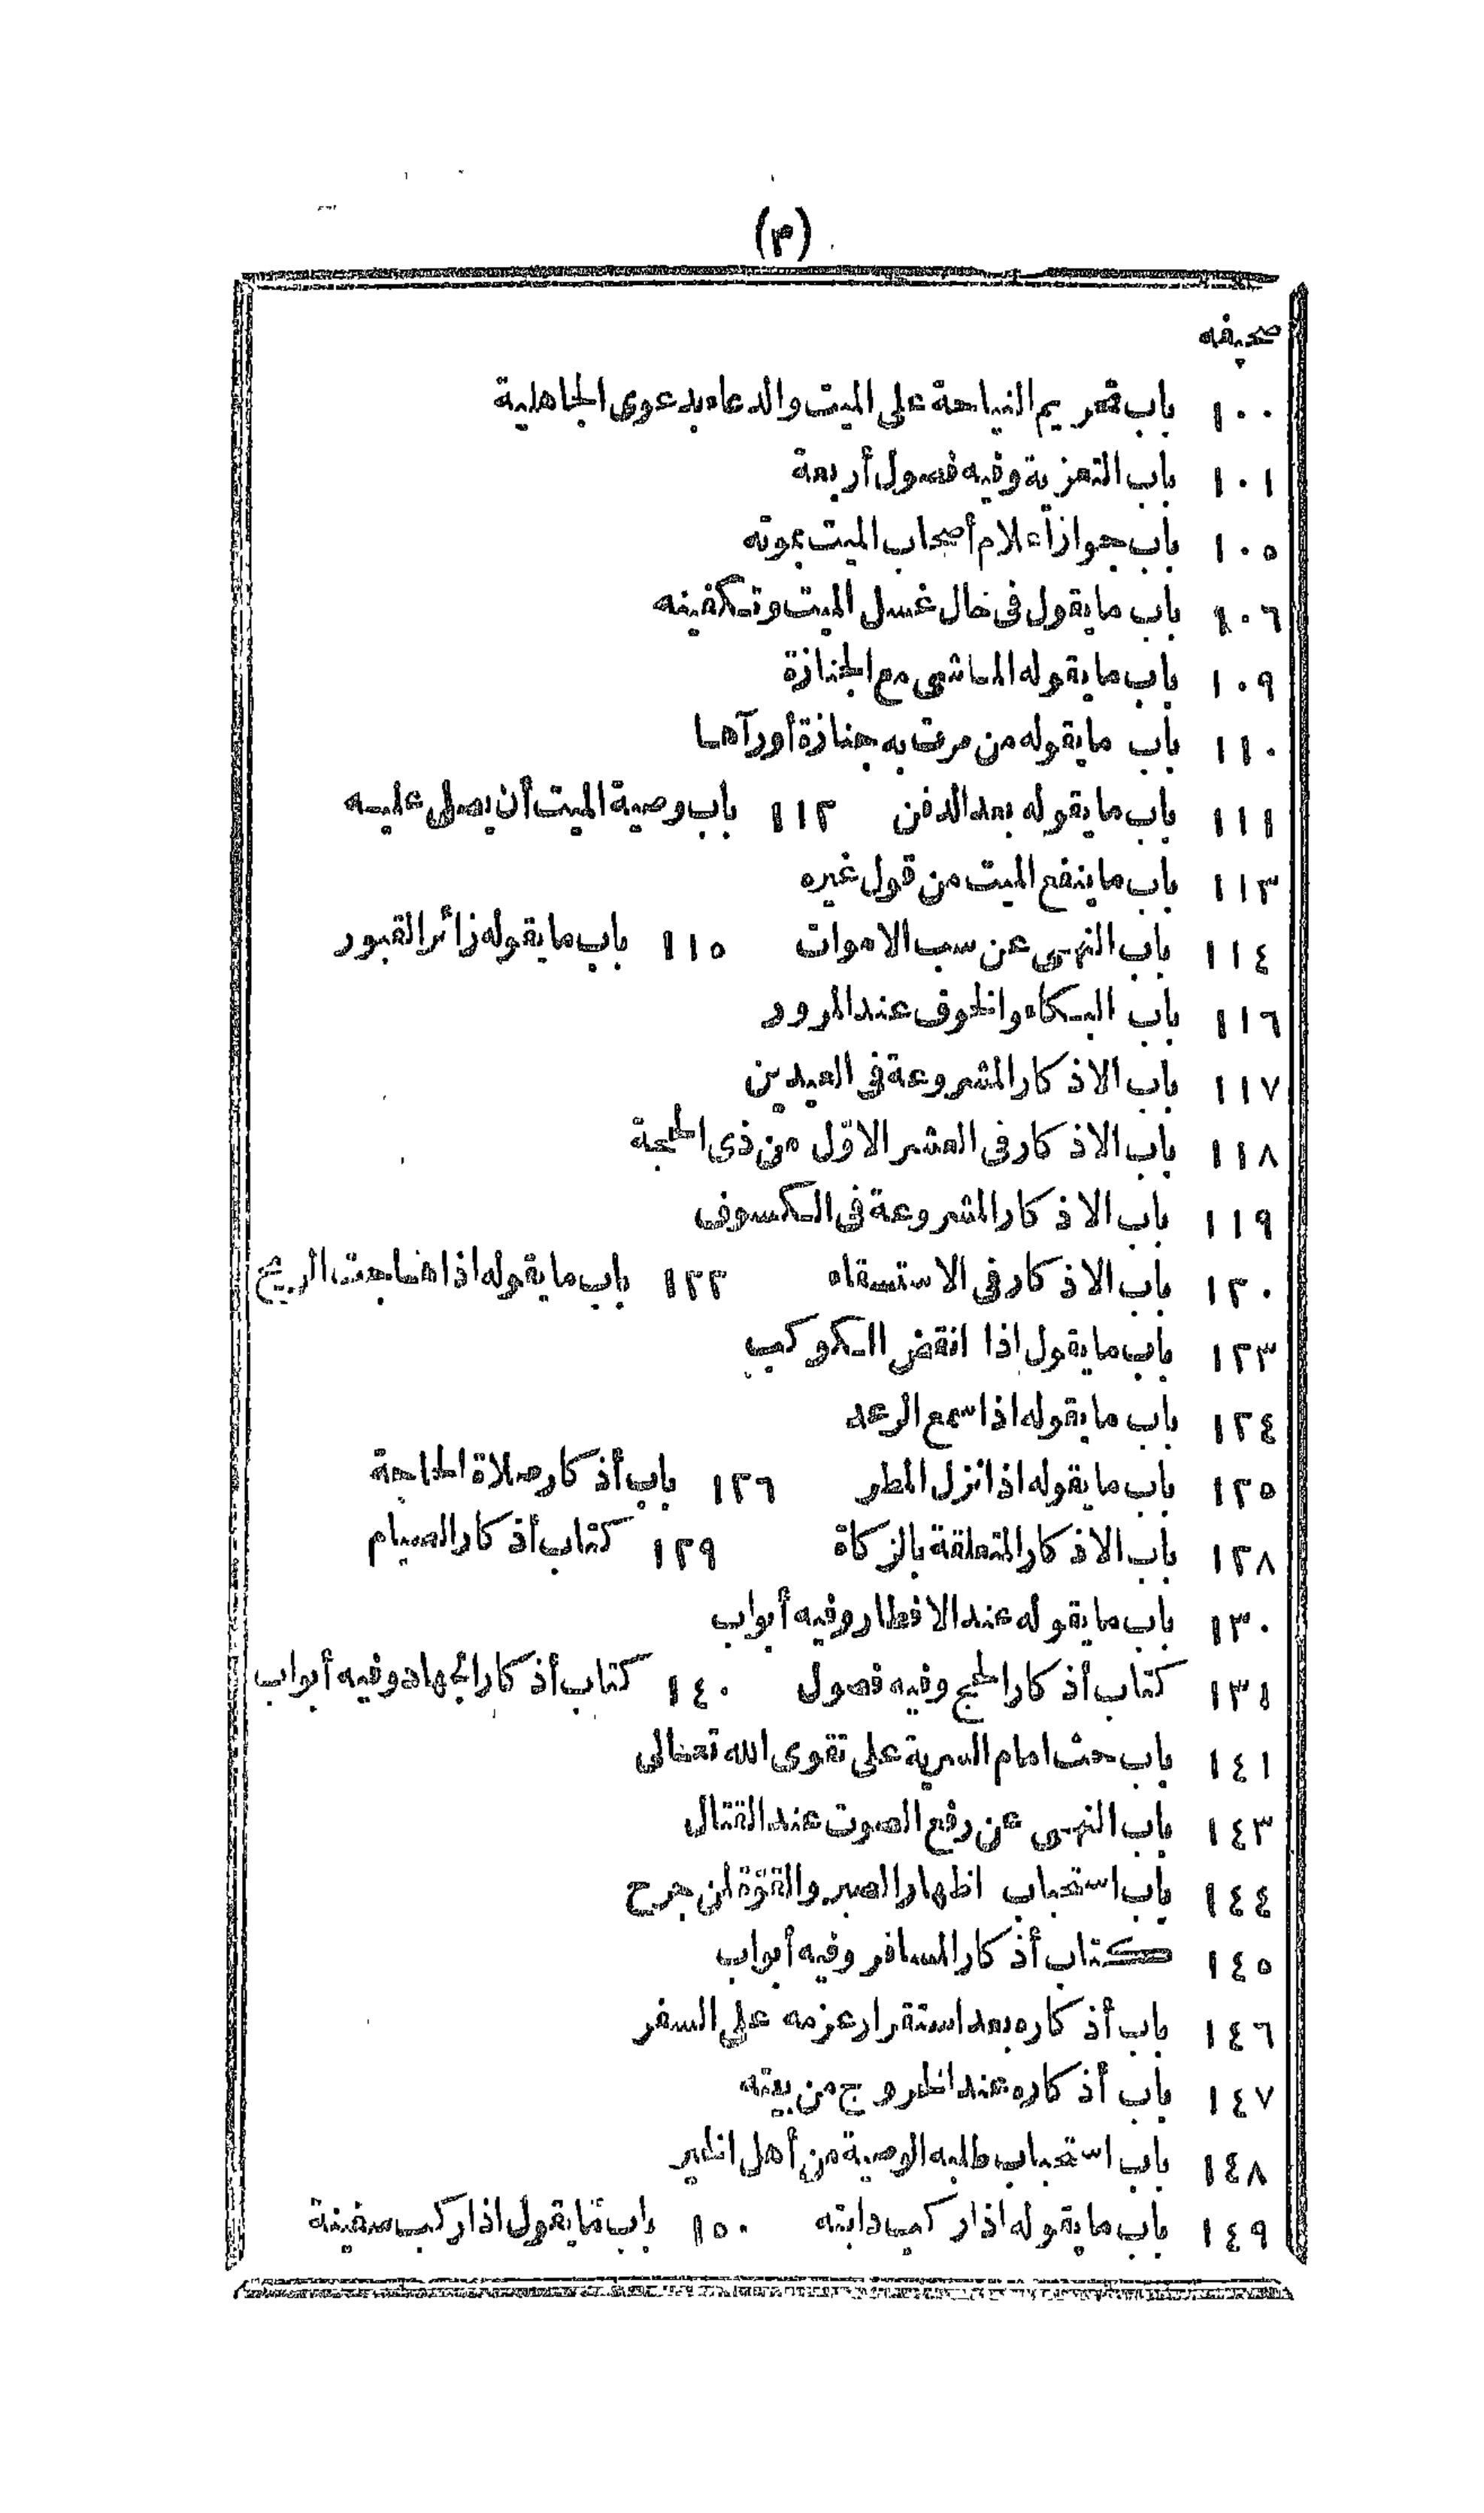 (٣)
صحيفه
١٠٠ باب تحريم النياحة على الميت والدعاء بدعوى الجاهلية
١٠١ باب التعزية وفيه فصول أربعة
١٠٥ باب جواز أعلام أصحاب الميت بموته
١٠٦ باب ما يقول فى حال غسل الميت وتكفينه
١٠٩ باب ما يقوله الماشى مع الجنازة
١١٠ باب ما يقوله من مرت به جنازة أو رآها
١١١ باب ما يقوله بعد الدفن ١١٢ باب وصية الميت أن يصلى عليه
١١٣ باب ما ينفع الميت من قول غيره
١١٤ باب النهى عن سب الاموات ١١٥ باب ما يقوله زائر القبور
١١٦ باب البكاء والخوف عند المرور
١١٧ باب الاذكار المشروعة فى العيدين
١١٨ باب الاذكار فى العشر الاوّل من ذى الحجة
١١٩ باب الاذكار المشروعة فى الكسوف
١٢٠ باب الاذكار فى الاستسقاء ١٢٢ باب ما يقوله اذا هاجت الريح
١٢٣ باب ما يقول اذا انقض الكوكب
١٢٤ باب ما يقوله اذا سمع الرعد
١٢٥ باب ما يقوله اذا نزل المطر ١٢٦ باب أذكار صلاة الحاجة
١٢٨ باب الاذكار المتعلقة بالزكاة ١٢٩ كتاب أذكار الصيام
١٣٠ باب ما يقوله عند الافطار وفيه أبواب
١٣١ كتاب أذكار الحج وفيه فصول ١٤٠ كتاب أذكار الجهاد وفيه أبواب
١٤١ باب حث امام السرية على تقوى الله تعالى
١٤٣ باب النهى عن رفع الصوت عند القتال
١٤٤ باب استحباب اظهار الصبر والقوّة لمن جرح
١٤٥ كتاب أذكار المسافر وفيه أبواب
١٤٦ باب أذكاره بعد استقرار عزمه على السفر
١٤٧ باب أذكاره عند الخروج من بيته
١٤٨ باب استحباب طلبه الوصية من أهل الخير
١٤٩ باب ما يقوله اذا ركب دابته ١٥٠ باب ما يقول اذا ركب سفينة